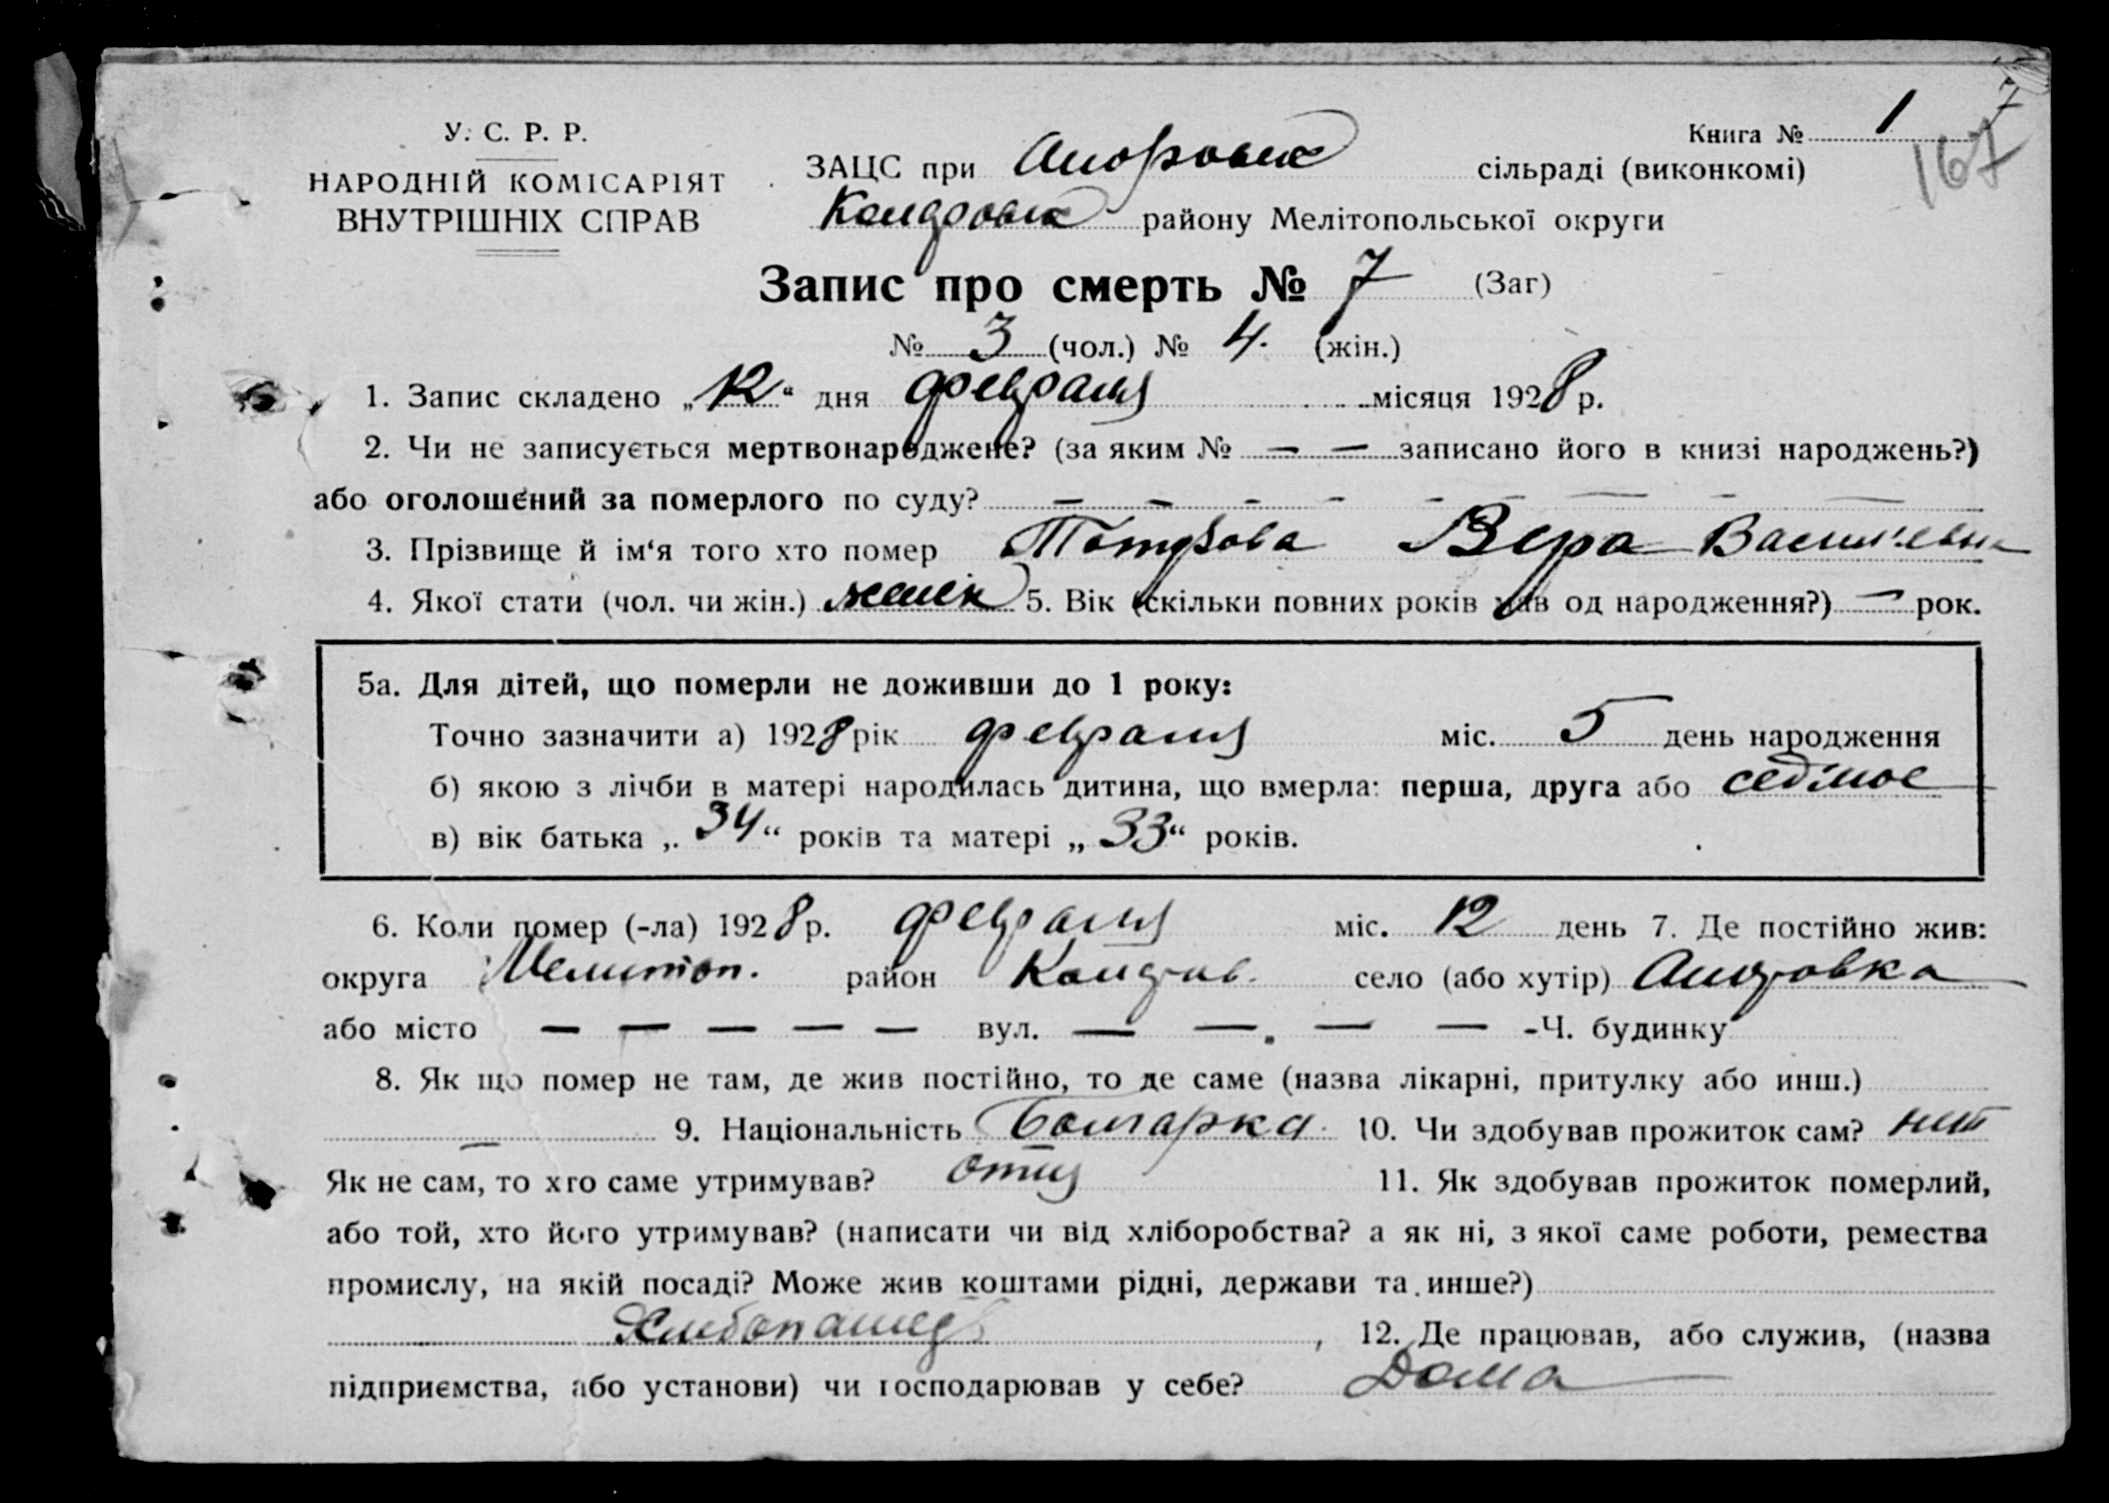 У. С. Р. Р.
НАРОДНІЙ КОМІСАРІЯТ
ВНУТРІШНІХ СПРАВ
Книга № 1
7
167
ЗАЦС при сільраді (виконкомі)
району Мелітопольської округи
Запис про смерть № 7 (Заг)
№ 3 (чол.) № 4. (жін.)
1. Запис складено „12“ дня февраля місяця 1928 р.
2. Чи не записується мертвонароджене? (за яким № — — записано його в книзі народжень?)
або оголошений за померлого по суду? — — — — — — — — —
3. Прізвище й ім‘я того хто помер Вера Васильевна
4. Якої стати (чол. чи жін.) женск 5. Вік (скільки повних років мав од народження?) — рок.
5а. Для дітей, що померли не доживши до 1 року:
Точно зазначити а) 1928 рік февраля міс. 5 день народження
б) якою з лічби в матері народилась дитина, що вмерла: перша, друга або седмое
в) вік батька „34“ років та матері „33“ років.
6. Коли помер (-ла) 1928 р. февраля міс. 12 день 7. Де постійно жив:
округа Мелитоп. район село (або хутір)
або місто — — — — — вул. — — — — Ч. будинку
8. Як що помер не там, де жив постійно, то де саме (назва лікарні, притулку або инш.)
— 9. Національність Болгарка 10. Чи здобував прожиток сам? нет
Як не сам, то хто саме утримував? отец 11. Як здобував прожиток померлий,
або той, хто його утримував? (написати чи від хліборобства? а як ні, з якої саме роботи, ремества
промислу, на якій посаді? Може жив коштами рідні, держави та инше?)
Хлебопашец, 12. Де працював, або служив, (назва
підприємства, або установи) чи господарював у себе? Дома